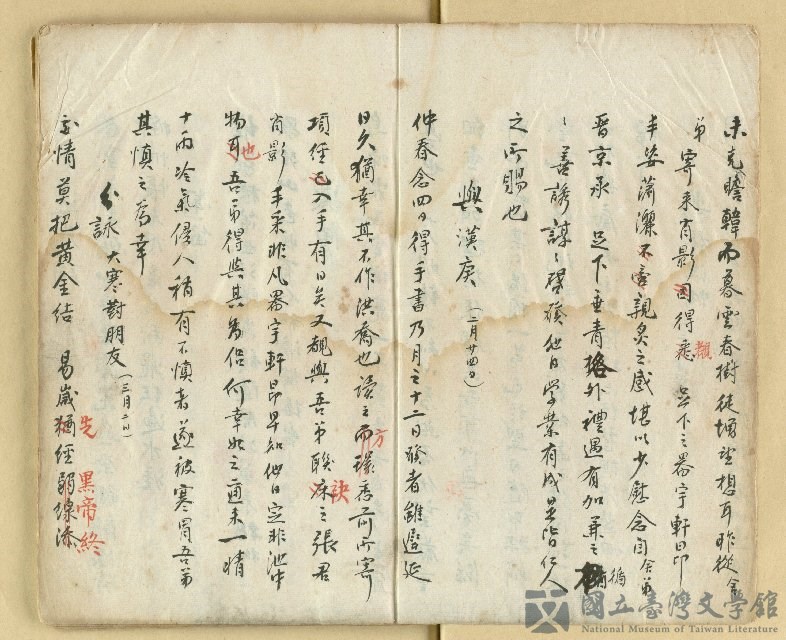 未克瞻韓而暮雲春樹徒增望想耳昨從舍
弟寄來肖影因得悉 足下之器宇軒昂
觀
丰姿瀟灑不啻親炙之感堪以少慰念自舍弟
晉京承 足下垂青格外禮遇有加兼之
循
ミ善誘諄ミ啓發他日學業有成是皆仁人
之所賜也
與漢庚(二月廿四日)
仲春念四日得手書乃月之十二日發者雖遲延
日久猶幸其不作洪喬也讀之而環悉前所寄
方
項經已入手有日矣又覩與吾弟聯床之張君
訣
肖影 手采非凡器宇軒昂早知他日定非池中
物耳吾弟得與其爲侶何幸如之邇來一晴
也
十雨冷氣侵人稍有不慎者遂被寒冒吾弟
其慎之爲幸
詠大寒對朋友(三月二日)
交情莫把黃金結 易歲猶經弱線添
先 黑帝終
國立臺灣文學館
National Museum of Taiwan Literature